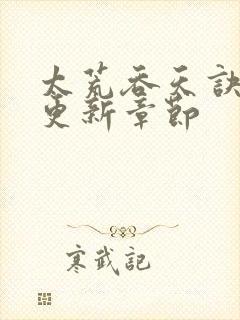 太荒吞天訣
更新章節
寒武記